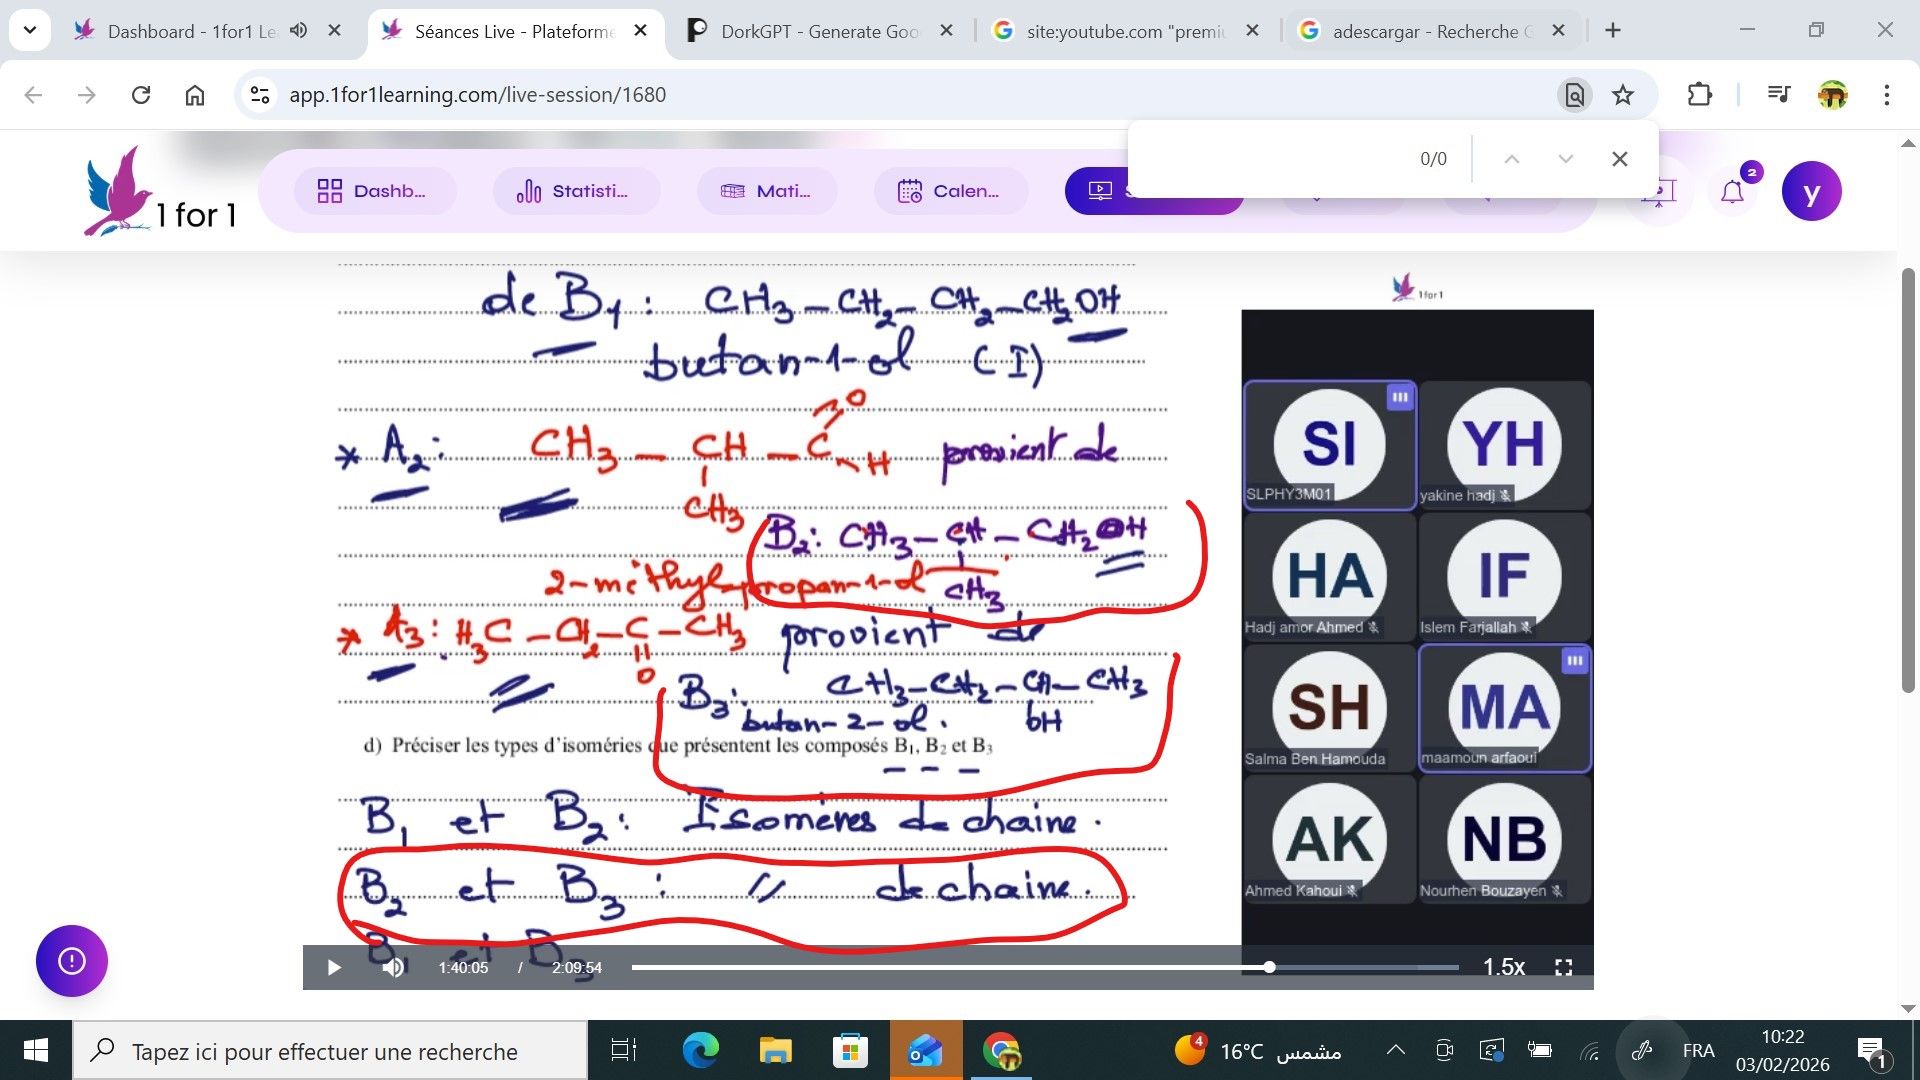 Dashboard - 1for1 Le
Séances Live - Plateforme
DorkGPT - Generate Goo
site:youtube.com "premiu
adescargar - Recherche G
app.1for1learning.com/live-session/1680
0/0
1 for 1
Dashb...
Statisti...
Mati...
Calen...
S
2
y
de B1 : CH3 - CH2 - CH2 - CH2OH
butan-1-ol (I)
1for1
* A2 : CH3 - CH - C = O - H provient de
CH3
B2 : CH3 - CH - CH2OH
2-méthylpropan-1-ol CH3
* A3 : H3C - CH2 - C - CH3 provient de
O
B3 : CH3 - CH2 - CH - CH3
butan-2-ol. OH
d) Préciser les types d'isoméries que présentent les composés B1, B2 et B3
B1 et B2 : Isomères de chaine.
B2 et B3 : // de chaine.
B1 et B3
SI
SLPHY3M01
YH
yakine hadj
HA
Hadj amor Ahmed
IF
Islem Farjallah
SH
Salma Ben Hamouda
MA
maamoun arfaoui
AK
Ahmed Kahoui
NB
Nourhen Bouzayen
1:40:05 / 2:09:54
1.5x
Tapez ici pour effectuer une recherche
4
16°C مشمس
FRA
10:22
03/02/2026
1